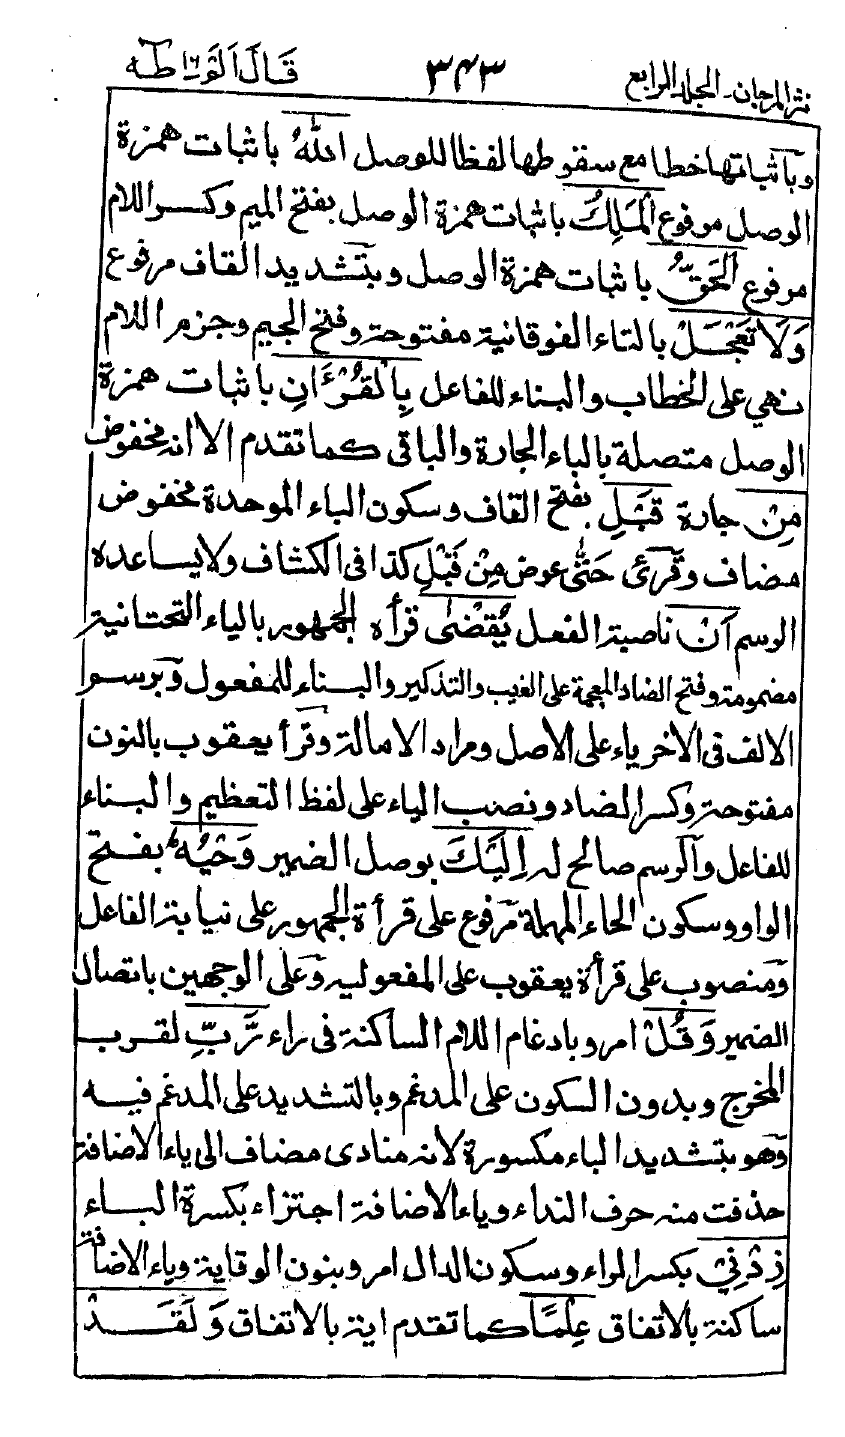 نثر المرجان۔ المجلد الرابع ٣٤٣ قَالَ اَلَمْ ١٦ طٰهٰ
وبآثباتها خطا مع سقوطها لفظا للوصل اللهُ باثبات همزة
الوصل مرفوع الْمَلِكُ باثبات همزة الوصل بفتح الميم وكسر اللام
مرفوع الْحَقُّ باثبات همزة الوصل وبتشديد القاف مرفوع
وَلَا تَعْجَلْ بالتاء الفوقانية مفتوحة وفتح الجيم وجزم اللام
نهي على الخطاب والبناء للفاعل بِالْقُرْءَانِ باثبات همزة
الوصل متصلة بالباء الجارة والباقى كما تقدم الا انه مخفوض
مِنْ جارة قَبْلِ بفتح القاف وسكون الباء الموحدة مخفوض
مضاف وقرئ حَتّٰى عوض مِنْ قَبْلِ كذا فى الكشاف ولا يساعده
الوسم اَنْ ناصبة الفعل يُقْضٰى قرأه الجمهور بالياء التحتانية
مضمومة وفتح الضاد المعجمة على الغيب والتذكير والبناء للمفعول وبرسم
الالف فى الاخر ياء على الاصل ومراد الامالة وقرأ يعقوب بالنون
مفتوحة وكسر الضاد ونصب الياء على لفظ التعظيم والبناء
للفاعل والرسم صالح له اِلَيْكَ بوصل الضمير وَحْيُهُ بفتح
الواو وسكون الحاء المهملة مرفوع على قرأة الجمهور على نيابة الفاعل
ومنصوب على قرأة يعقوب على المفعولية وعلى الوجهين باتصال
الضمير وَقُلْ امر وبادغام اللام الساكنة فى راء رَّبِّ لقرب
المخرج وبدون السكون على المدغم وبالتشديد على المدغم فيه
وهو بتشديد الباء مكسورة لانه منادى مضاف الى ياء الاضافة
حذفت منه حرف النداء وياء الاضافة اجتزاء بكسرة الباء
زِدْنِىْ بكسر الراء وسكون الدال امر وبنون الوقاية وياء الاضافة
ساكنة بالاتفاق عِلْمًا كما تقدم اية بالاتفاق وَلَقَدْ